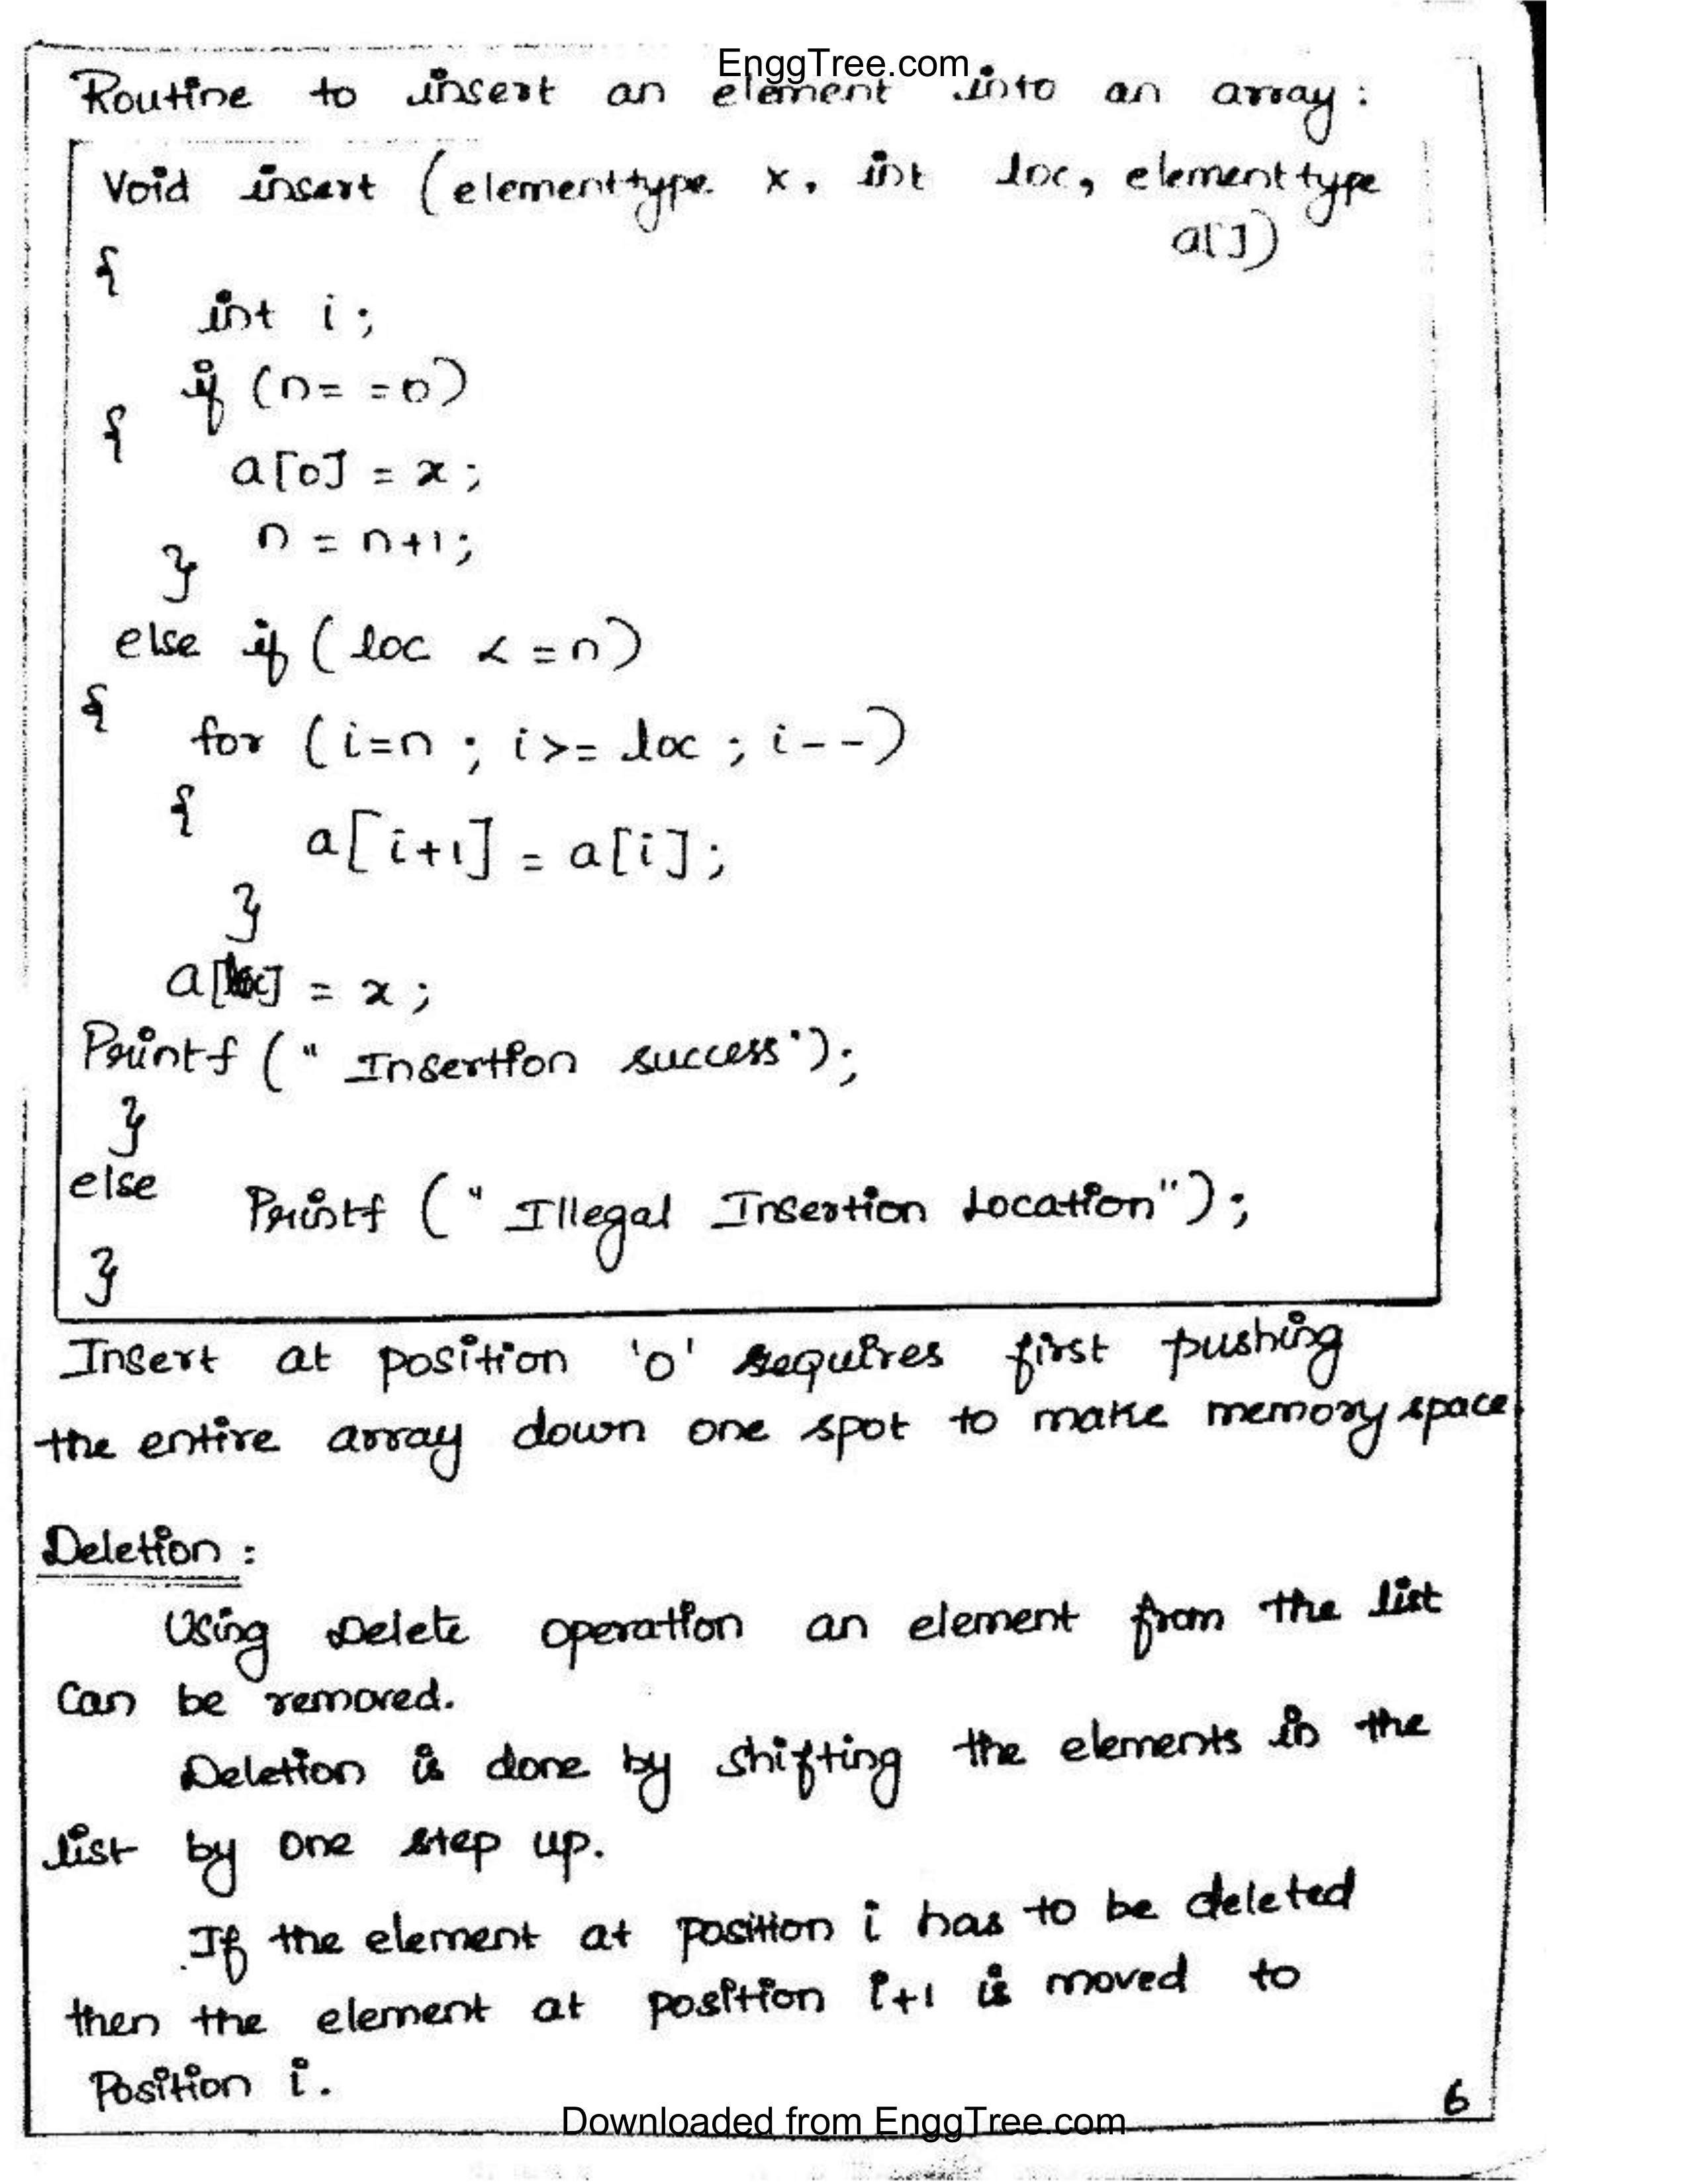 EnggTree.com
Routine to insert an element into an array :
Void insert (elementtype x, int loc, elementtype
a[])
{
int i ;
if (n= =0)
{
a[0] = x ;
n = n+1;
}
else if ( loc <=n)
{
for ( i=n ; i>= loc ; i--)
{
a[i+1] = a[i] ;
}
a[loc] = x ;
Printf (" Insertion success");
}
else
Printf (" Illegal Insertion Location") ;
}
Insert at position '0' requires first pushing
the entire array down one spot to make memory space.
Deletion :
Using Delete operation an element from the list
Can be removed.
Deletion is done by shifting the elements in the
list by one step up.
If the element at position i has to be deleted
then the element at position i+1 is moved to
Position i.
6
Downloaded from EnggTree.com